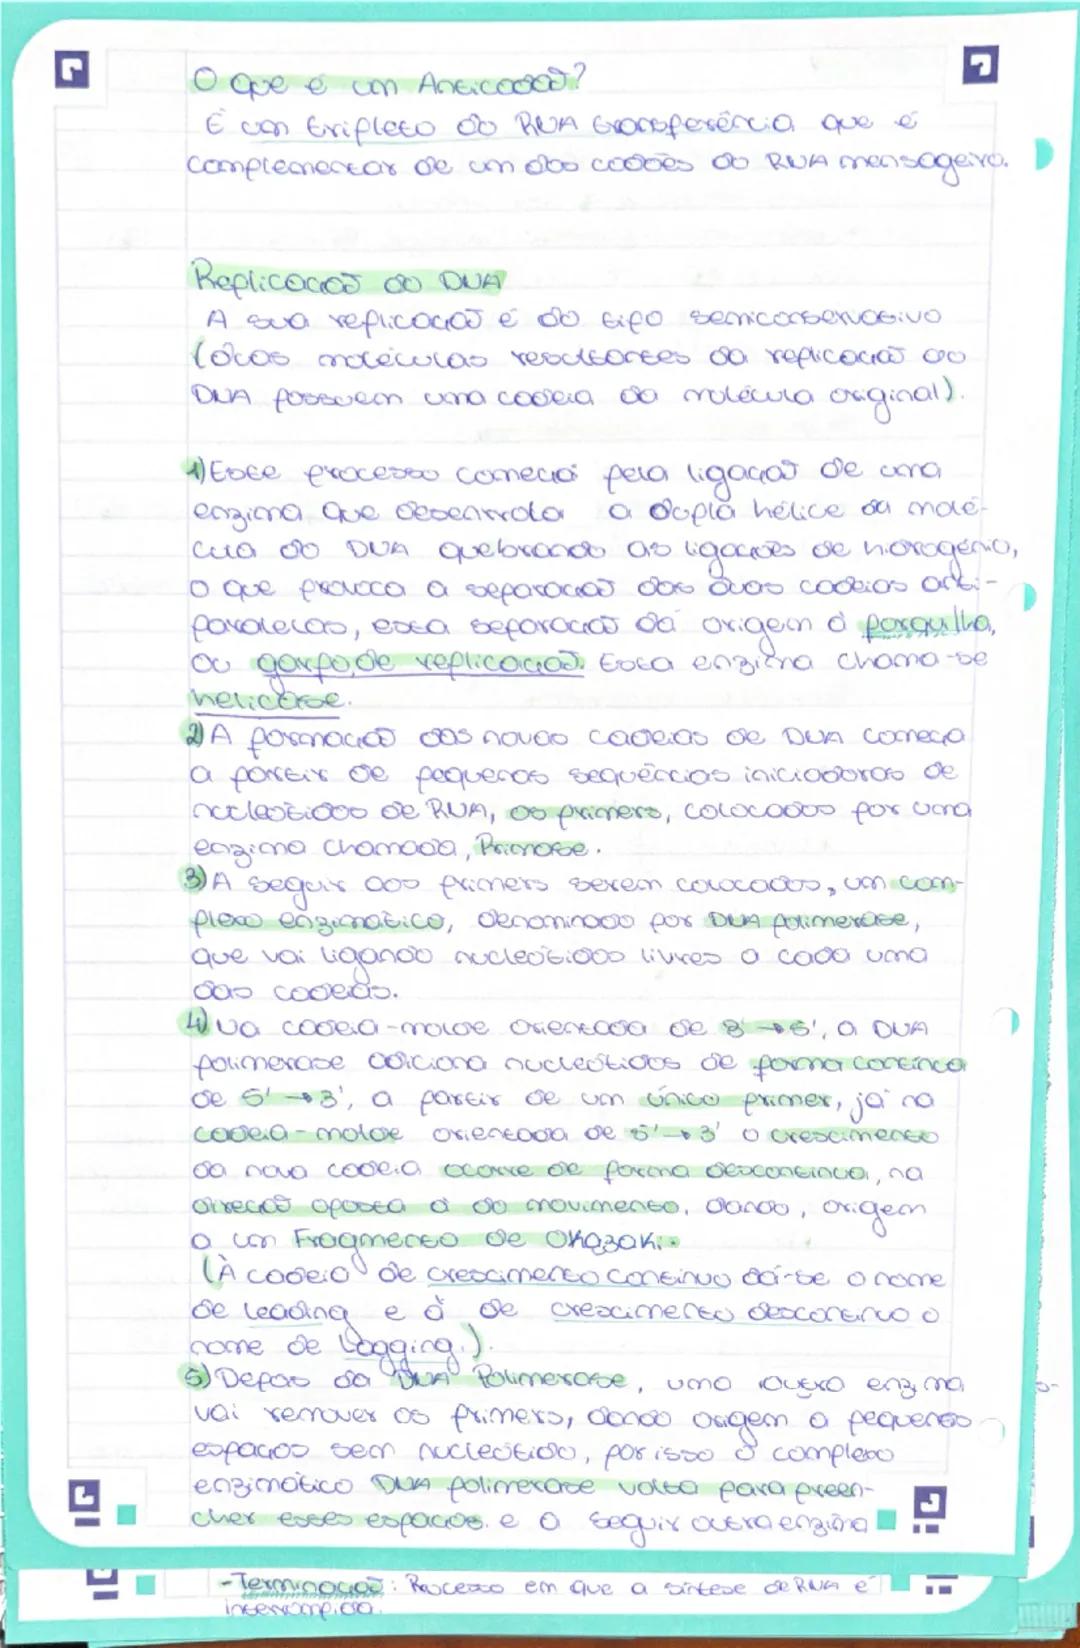 O que é um Anticodão?
É um tripleto do RNA transferência que é
complementar de um dos codões do RNA mensageiro.
Replicação do DNA
A sua replicação é do tipo semiconservativo
(duas moléculas resultantes da replicação do
DNA possuem uma cadeia da molécula original).
1) Este processo começa pela ligação de uma
enzima que desenrola a dupla hélice da molé-
cula do DNA quebrando as ligações de hidrogénio,
o que provoca a separação das duas cadeias anti-
paralelas, esta separação dá origem á forquilha,
ou garfo, de replicação. Esta enzima chama-se
helicase.
2) A formação das novas cadeias de DNA começa
a partir de pequenas sequências iniciadoras de
nucleótidos de RNA, os primers, colocados por uma
enzima chamada, Primase.
3) A seguir aos primers serem colocados, um com-
plexo enzimático, denominado por DNA polimerase,
que vai ligando nucleótidos livres a cada uma
das cadeias.
4) Na cadeia-molde orientada de 3'→5', a DNA
polimerase adiciona nucleótidos de forma contínua
de 5'→3', a partir de um único primer, já na
cadeia-molde orientada de 5'→3' o crescimento
da nova cadeia ocorre de forma descontínua, na
direção oposta á do movimento, dando, origem
a um Fragmento de Okazaki.
(À cadeia de crescimento contínuo dá-se o nome
de leading e á de crescimento descontínuo o
nome de lagging.).
5) Depois da DNA Polimerase, uma outra enzima
vai remover os primers, dando origem a pequenos
espaços sem nucleótido, por isso o complexo
enzimático DNA polimerase volta para preen-
cher esses espaços. e a seguir outra enzima
-Terminação: Processo em que a síntese de RNA é
interrompida.